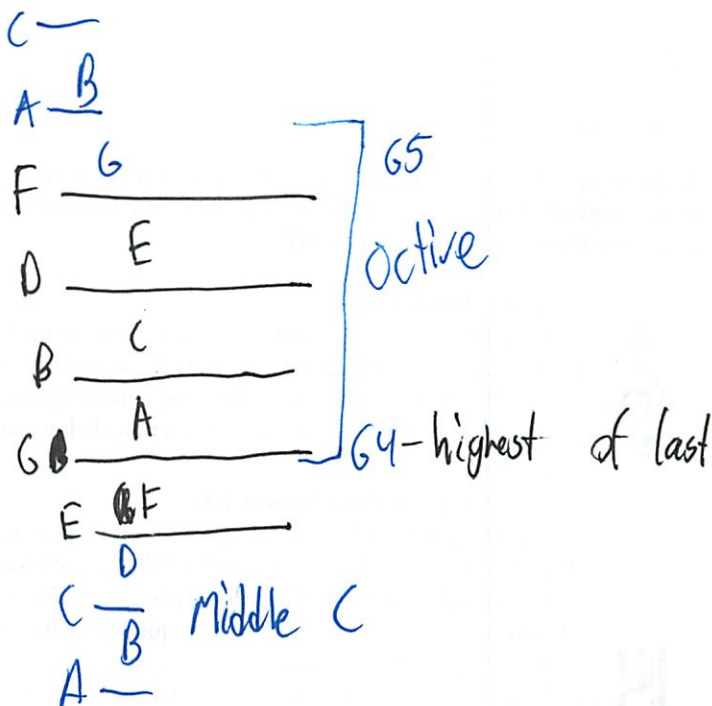 C
B
A
G
G5
F
E
Octive
D
C
B
A
G
G4-highest of last
F
E
D
C Middle C
B
A